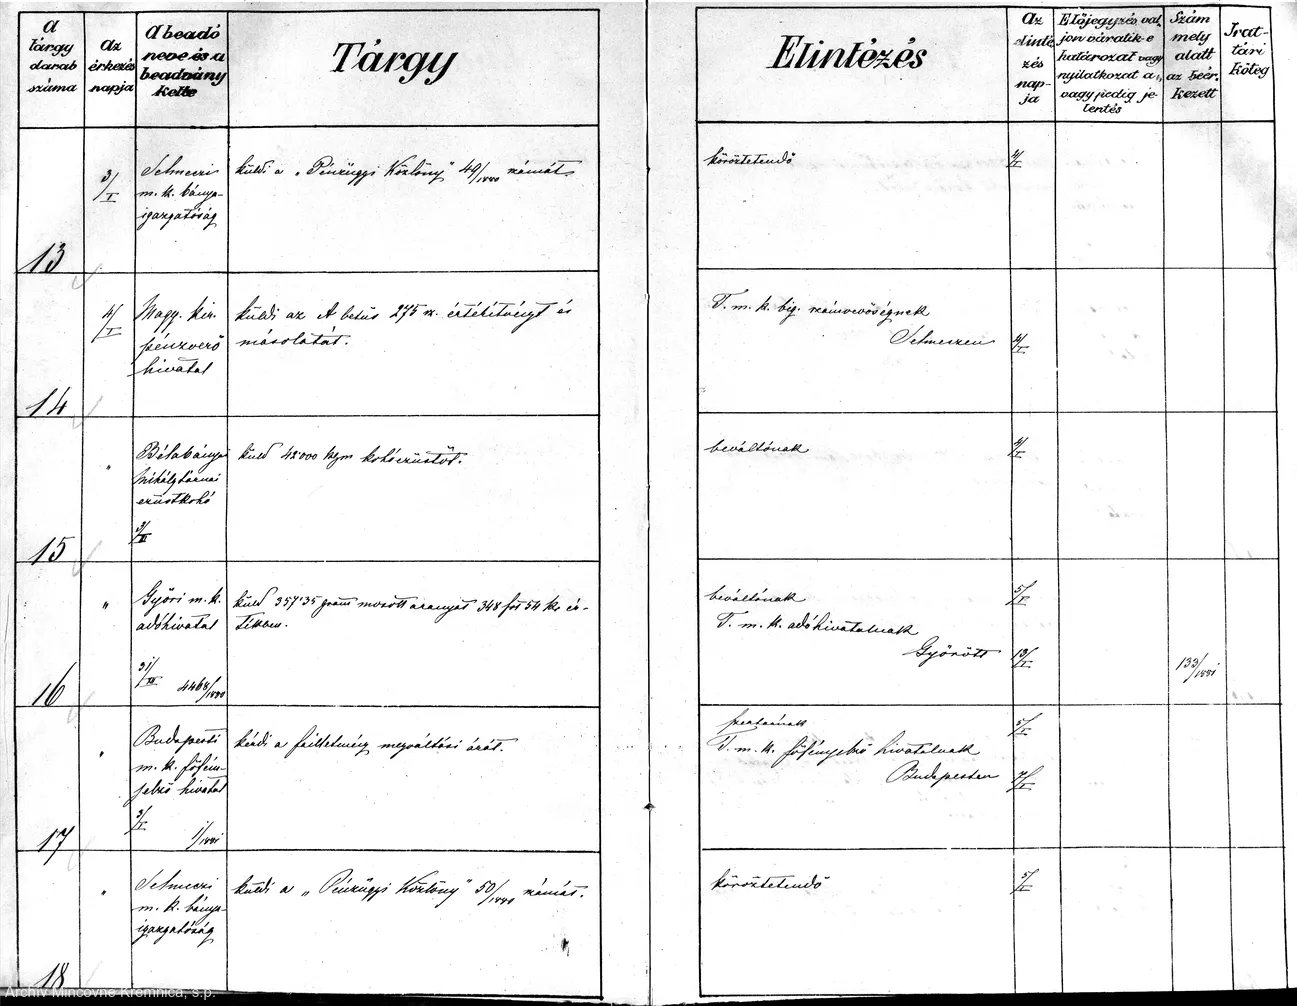 A tárgy darab száma
Az érkezés napja
A beadó neve és a beadvány kelte
Tárgy
Elintézés
Az elintézés napja
Előjegyzés, valjon váratik-e határozat vagy nyilatkozat a, vagy pedig jelentés
Szám mely alatt az beérkezett
Irattári köteg
13
3/I
Selmeczi
m. k. bánya-
igazgatóság
küldi a „Pénzügyi Közlöny" 49/1880 számát
köröztetendő
4/I
14
4/I
Magy. kir.
pénzverő
hivatal
küldi az A betüs 275 sz. értékítvényt és
másolatát.
T. m. k. big. számvevőségnek
Selmeczen
4/I
15
"
Bélabányai
Mihálytárnai
ezüstkohó
3/II
küld 42·000 kgm kohóezüstöt.
beváltónak
4/I
16
"
Győri m. k.
adóhivatal
31/XII 4468/1880
küld 357·35 gram mosott aranyat 348 frt 54 kr ér-
tékben.
beváltónak
5/I
T. m. k. adóhivatalnak
Győrött
13/I
133/1881
17
"
Budapesti
m. k. főfém-
jelző hivatal
3/I 1/1881
kérdi a féltermény megváltási árát.
5/I
T. m. k. főfémjelző hivatalnak
Budapesten
7/I
18
"
Selmeczi
m. k. bánya-
igazgatóság
küldi a „Pénzügyi Közlöny" 50/1880 számát.
köröztetendő
5/I
Archív Mincovne Kremnica, š.p.